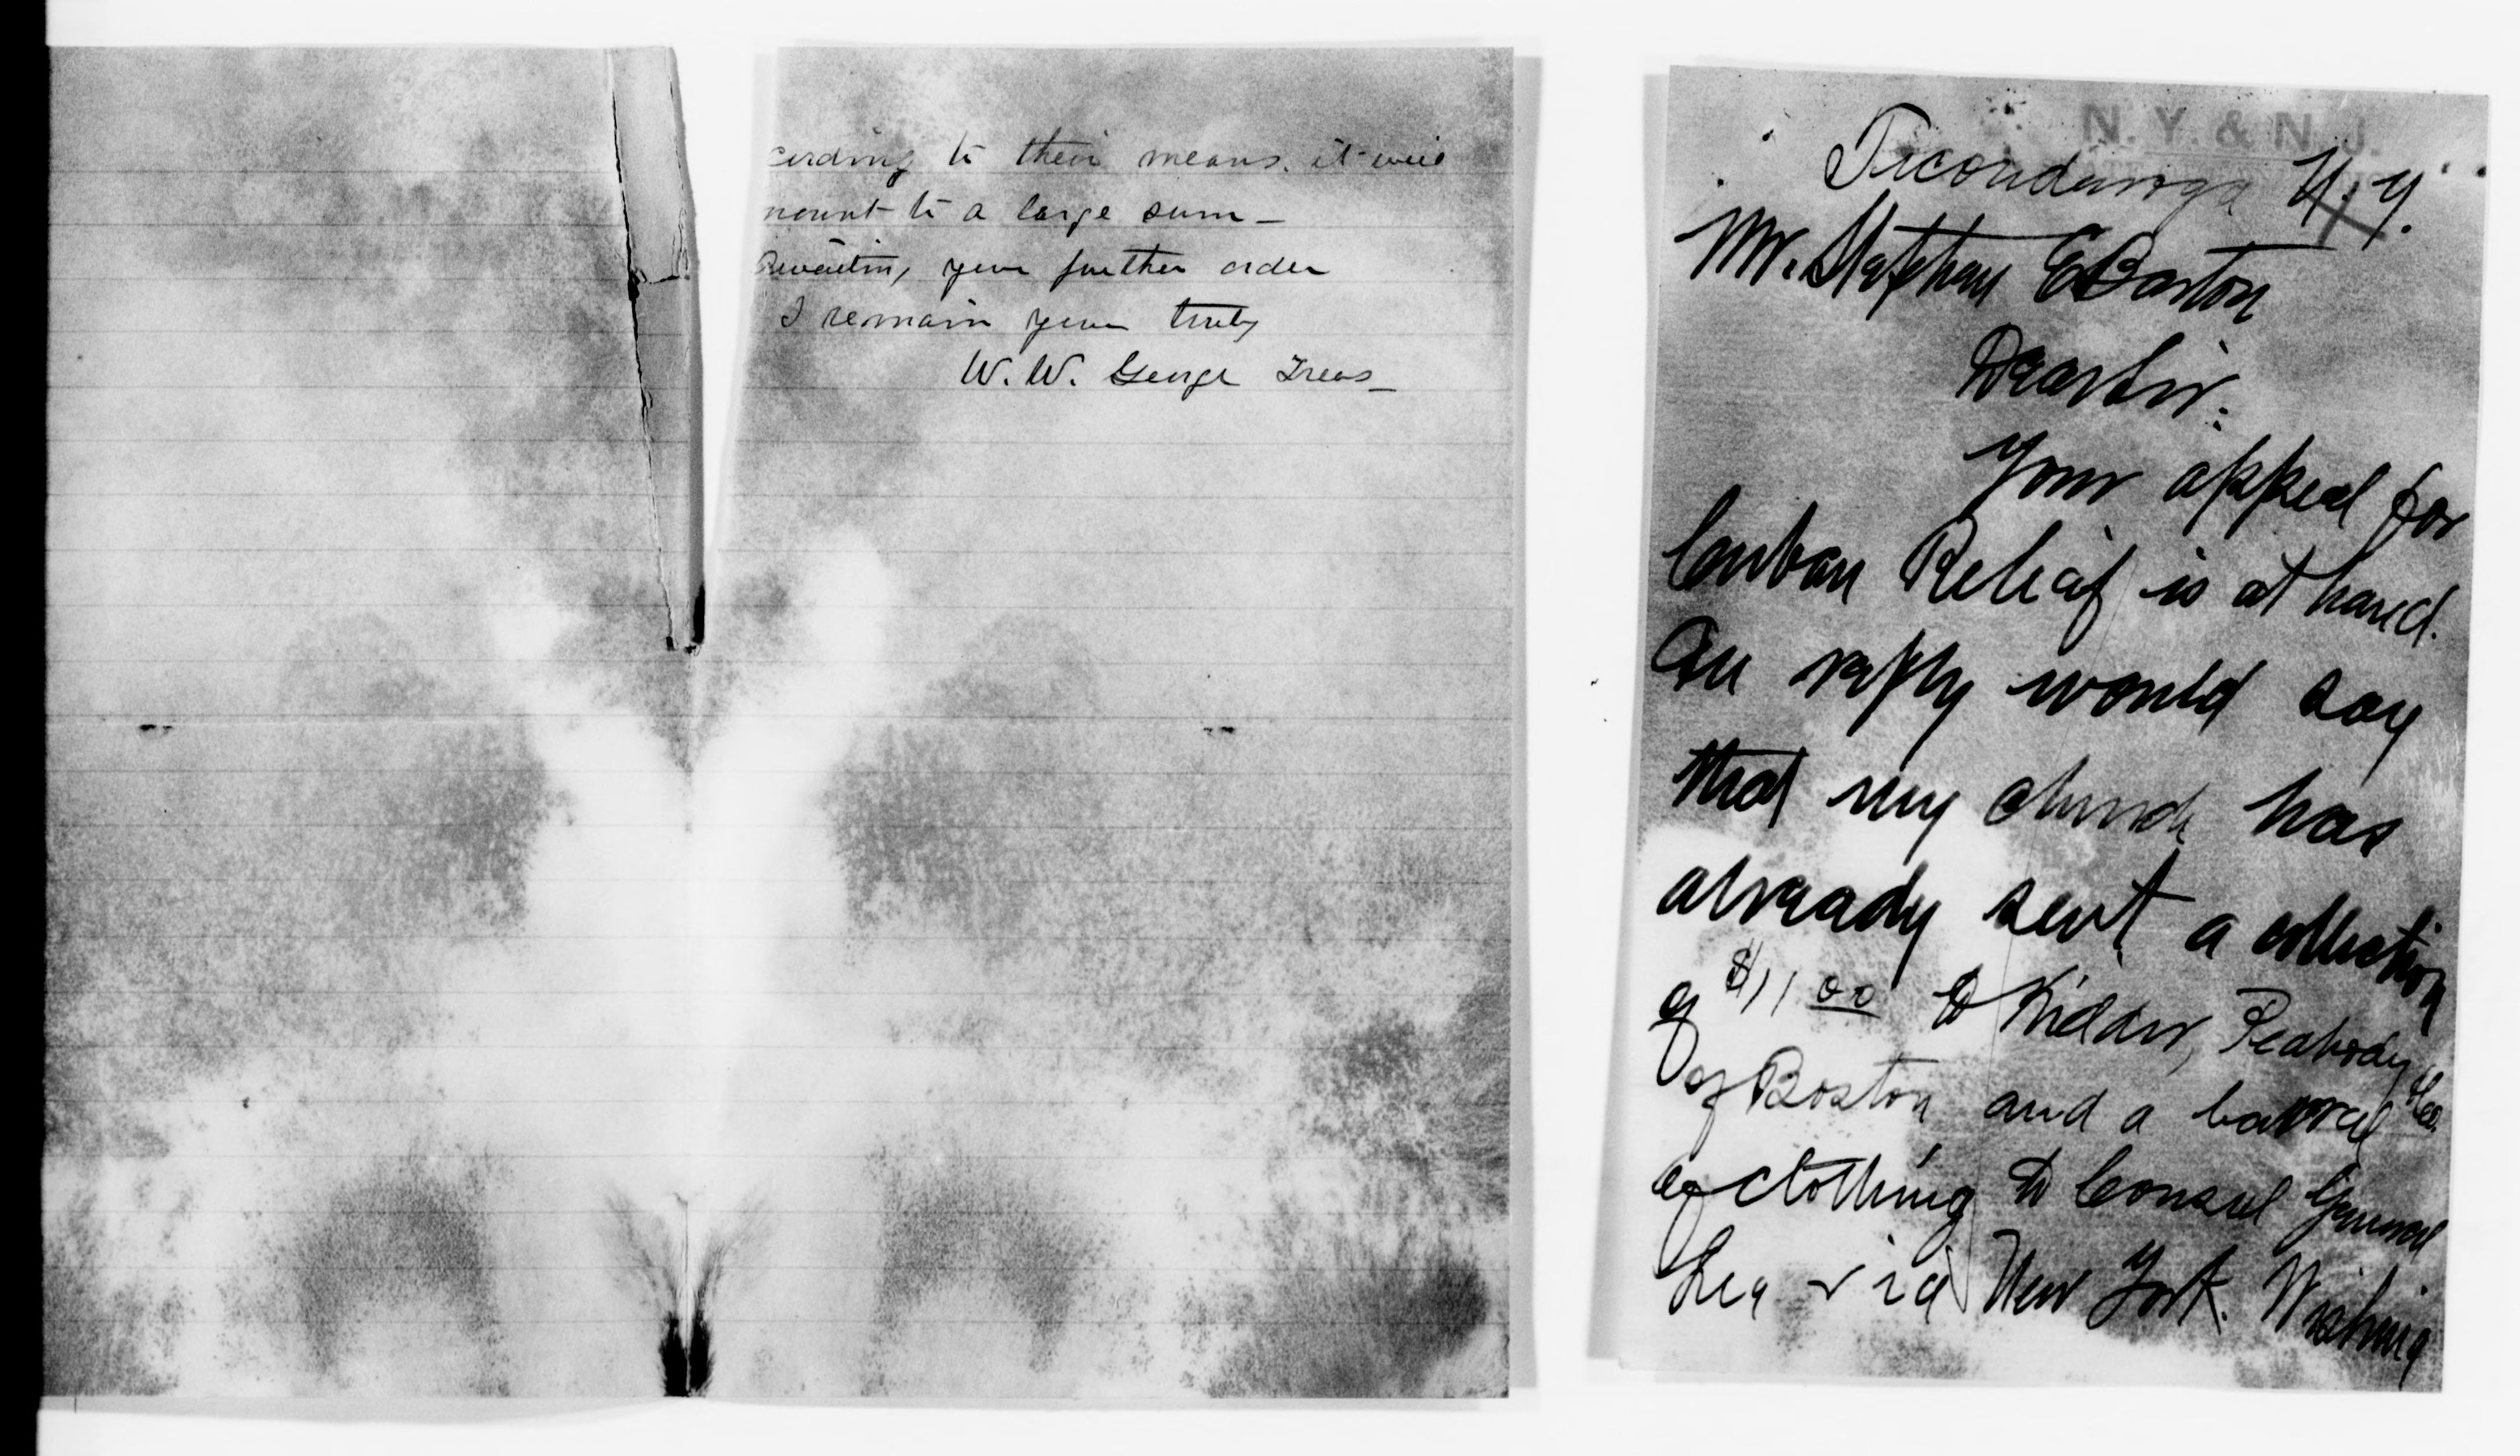 cording to their means. it will
mount to a large sum —
Awaiting your further order
I remain your truly
W. W. George Treas —
N. Y. & N. J.
Ticonderoga N. Y.
Mr. Stephen E Barton
Dear Sir:
Your appeal for
Cuban Relief is at hand.
In reply would say
that my church has
already sent a collection
of $11 00 to Kidder, Peabody & Co.
of Boston and a barrel
of clothing to Consul General
Lee via New York. Wishing